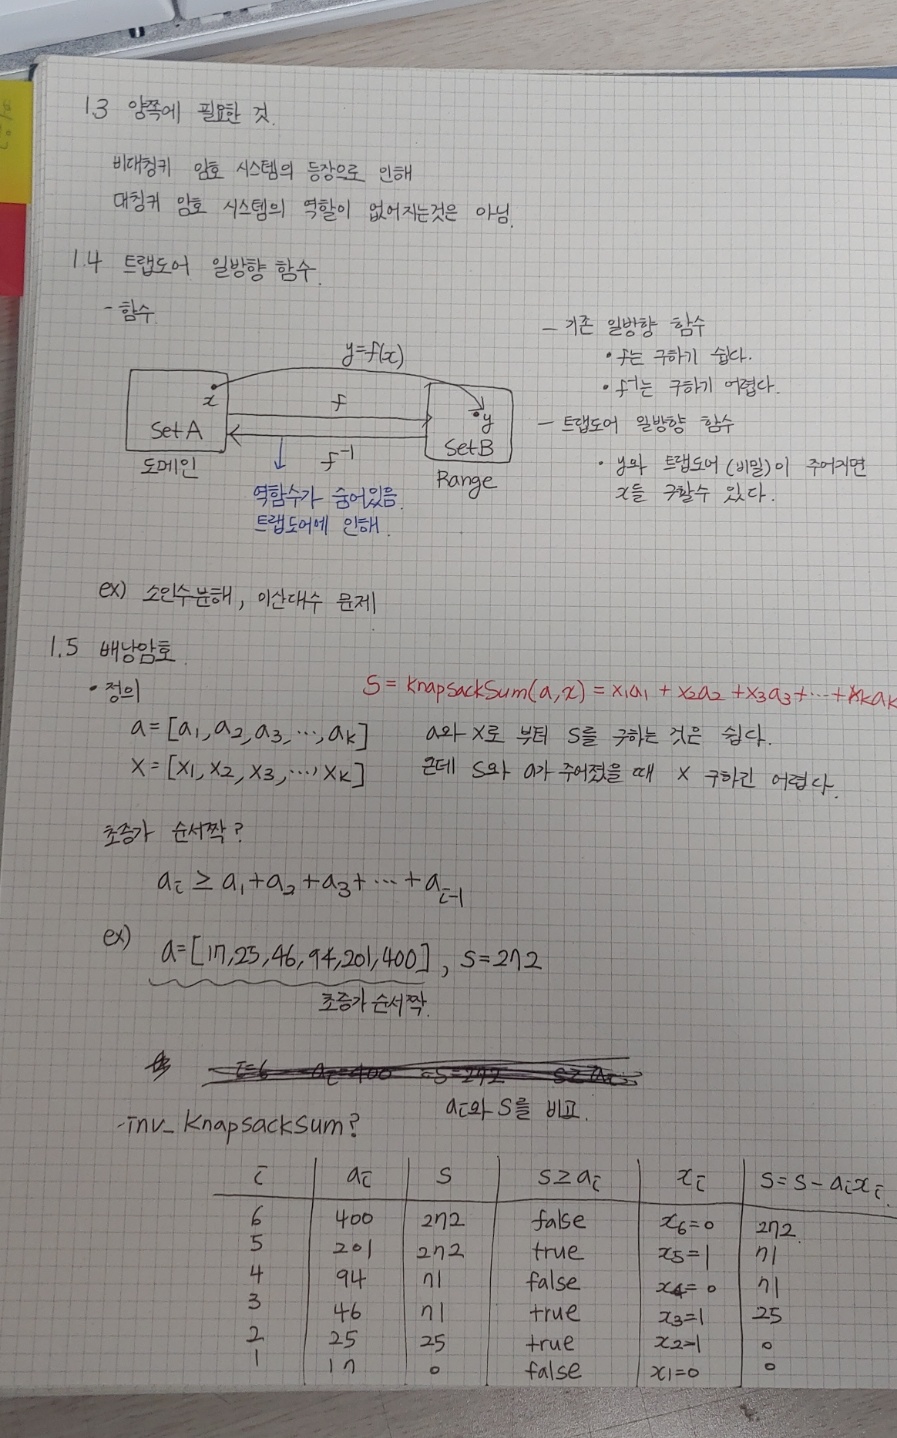 1.3 양쪽에 필요한 것.
비대칭키 암호 시스템의 등장으로 인해
대칭키 암호 시스템의 역할이 없어지는것은 아님.
1.4 트랩도어 일방향 함수.
- 함수.
y=f(x)
x
f
y
Set A
f⁻¹
Set B
도메인
Range
역함수가 숨어있음.
트랩도어에 인해.
- 기존 일방향 함수
• f는 구하기 쉽다.
• f⁻¹는 구하기 어렵다.
- 트랩도어 일방향 함수
• y와 트랩도어(비밀)이 주어지면
x를 구할수 있다.
ex) 소인수분해, 이산대수 문제
1.5 배낭암호.
• 정의
S = KnapsackSum(a,x) = x₁a₁ + x₂a₂ + x₃a₃ + ⋯ + xₖaₖ
a = [a₁, a₂, a₃, ⋯, aₖ] a와 x로 부터 S를 구하는 것은 쉽다.
X = [x₁, x₂, x₃, ⋯, xₖ] 근데 S와 a가 주어졌을 때 x 구하긴 어렵다.
초증가 순서짝?
aᵢ ≥ a₁+a₂+a₃+⋯+aᵢ₋₁
ex) a=[17,25,46,94,201,400], S=272
초증가 순서짝.
i=6 aᵢ=400 S=272 S≥aᵢ
aᵢ와 S를 비교.
-inv_KnapsackSum?
i aᵢ S S≥aᵢ xᵢ S=S-aᵢxᵢ.
6 400 272 false x₆=0 272
5 201 272 true x₅=1 71
4 94 71 false x₄=0 71
3 46 71 true x₃=1 25
2 25 25 true x₂=1 0
1 17 0 false x₁=0 0